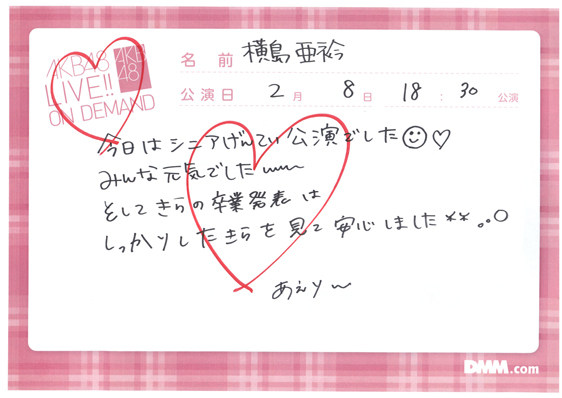 AKB48
LIVE!!
ON DEMAND
AKB
48
名前 横島亜衿
公演日 2月 8日 18:30 公演
今日はシニアげんてい公演でした☺♡
みんな元気でした〜〜
そしてきらの卒業発表は
しっかりしたきらを見て安心しました**..○
あえり〜
DMM.com